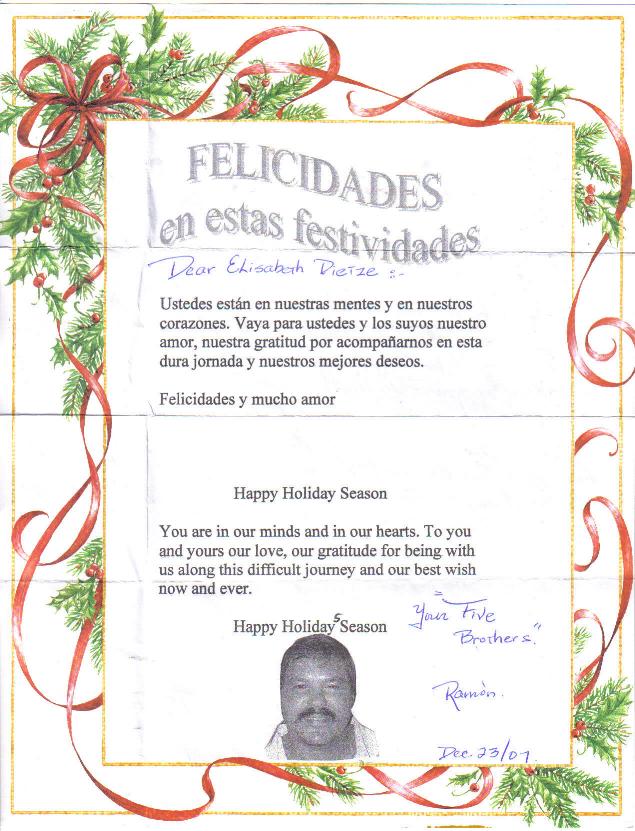 FELICIDADES
en estas festividades
Dear Elisabeth Dietze :-
Ustedes están en nuestras mentes y en nuestros
corazones. Vaya para ustedes y los suyos nuestro
amor, nuestra gratitud por acompañarnos en esta
dura jornada y nuestros mejores deseos.
Felicidades y mucho amor
Happy Holiday Season
You are in our minds and in our hearts. To you
and yours our love, our gratitude for being with
us along this difficult journey and our best wish
now and ever.
Happy Holiday s Season
"Your Five
Brothers."
Ramón.
Dec. 23/07.